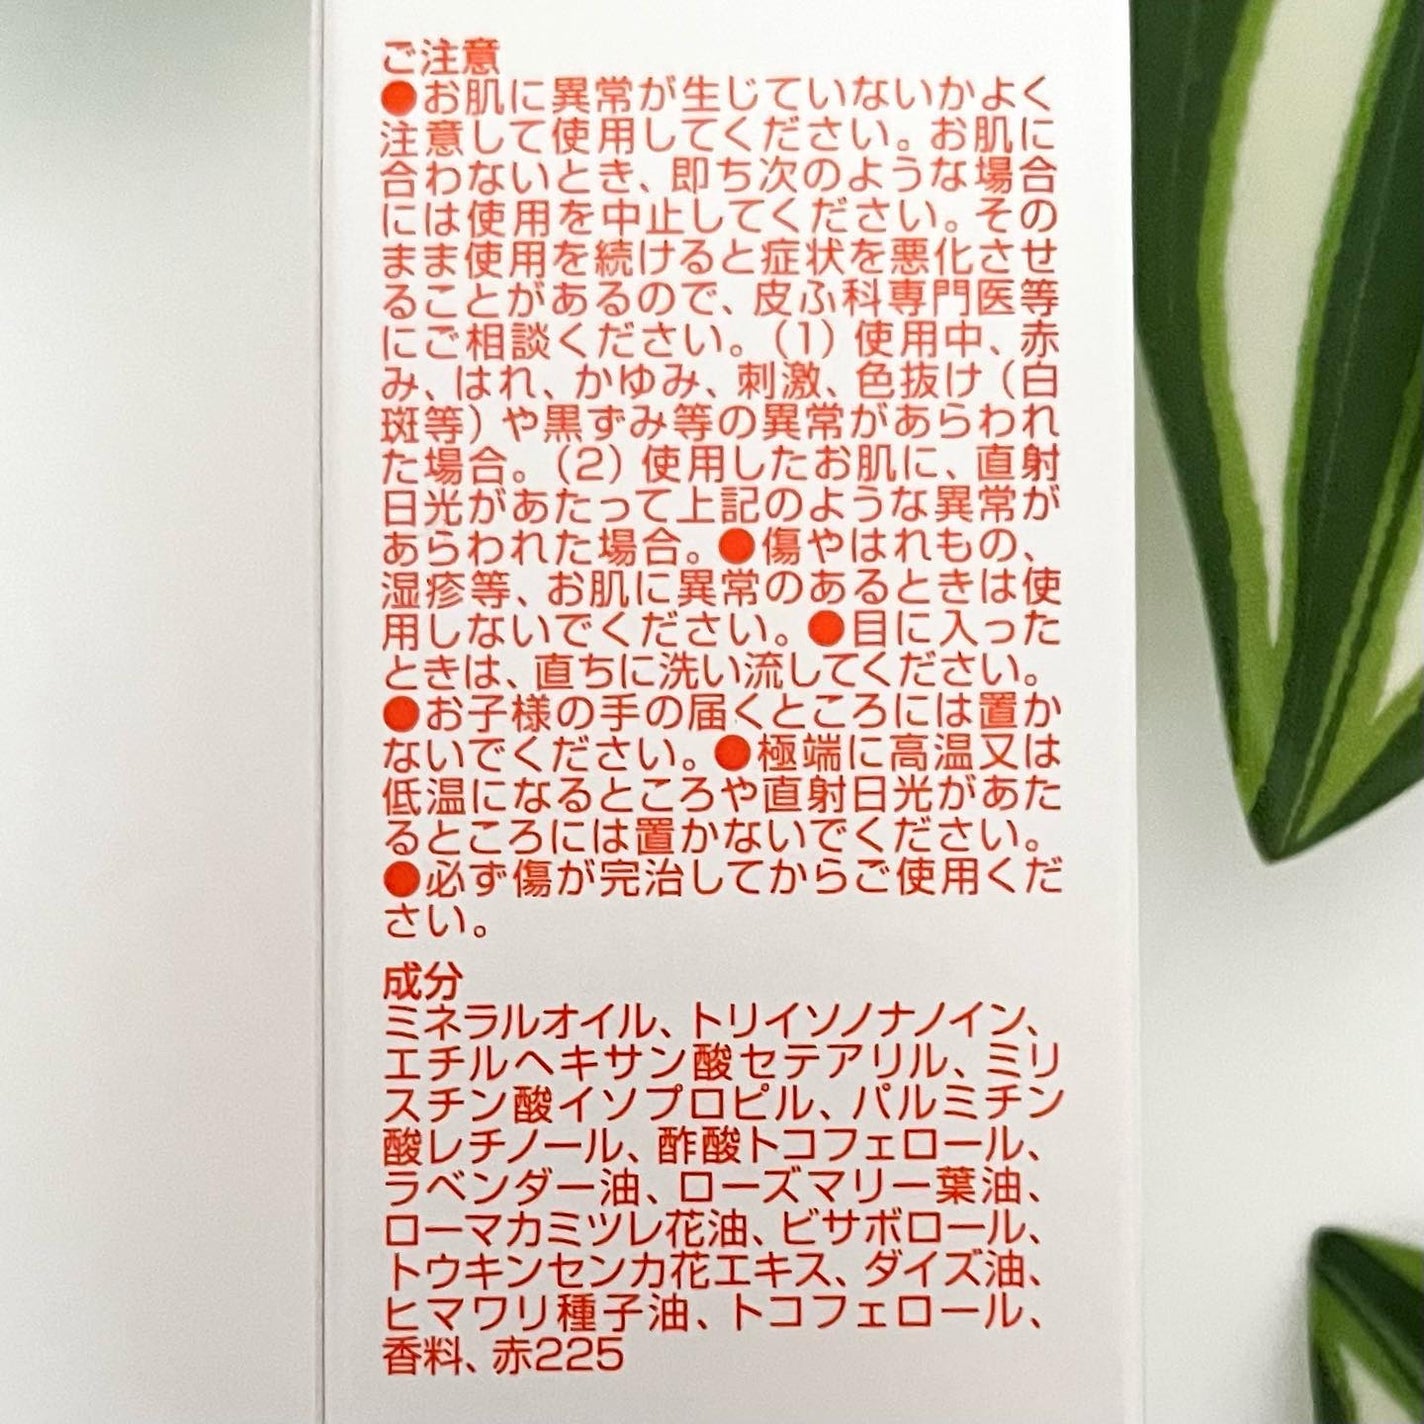 ご注意
●お肌に異常が生じていないかよく
注意して使用してください。お肌に
合わないとき、即ち次のような場合
には使用を中止してください。その
まま使用を続けると症状を悪化させ
ることがあるので、皮ふ科専門医等
にご相談ください。(1)使用中、赤
み、はれ、かゆみ、刺激、色抜け(白
斑等)や黒ずみ等の異常があらわれ
た場合。(2)使用したお肌に、直射
日光があたって上記のような異常が
あらわれた場合。●傷やはれもの、
湿疹等、お肌に異常のあるときは使
用しないでください。●目に入った
ときは、直ちに洗い流してください。
●お子様の手の届くところには置か
ないでください。●極端に高温又は
低温になるところや直射日光があた
るところには置かないでください。
●必ず傷が完治してからご使用くだ
さい。
成分
ミネラルオイル、トリイソノナノイン、
エチルヘキサン酸セテアリル、ミリ
スチン酸イソプロピル、パルミチン
酸レチノール、酢酸トコフェロール、
ラベンダー油、ローズマリー葉油、
ローマカミツレ花油、ビサボロール、
トウキンセンカ花エキス、ダイズ油、
ヒマワリ種子油、トコフェロール、
香料、赤225